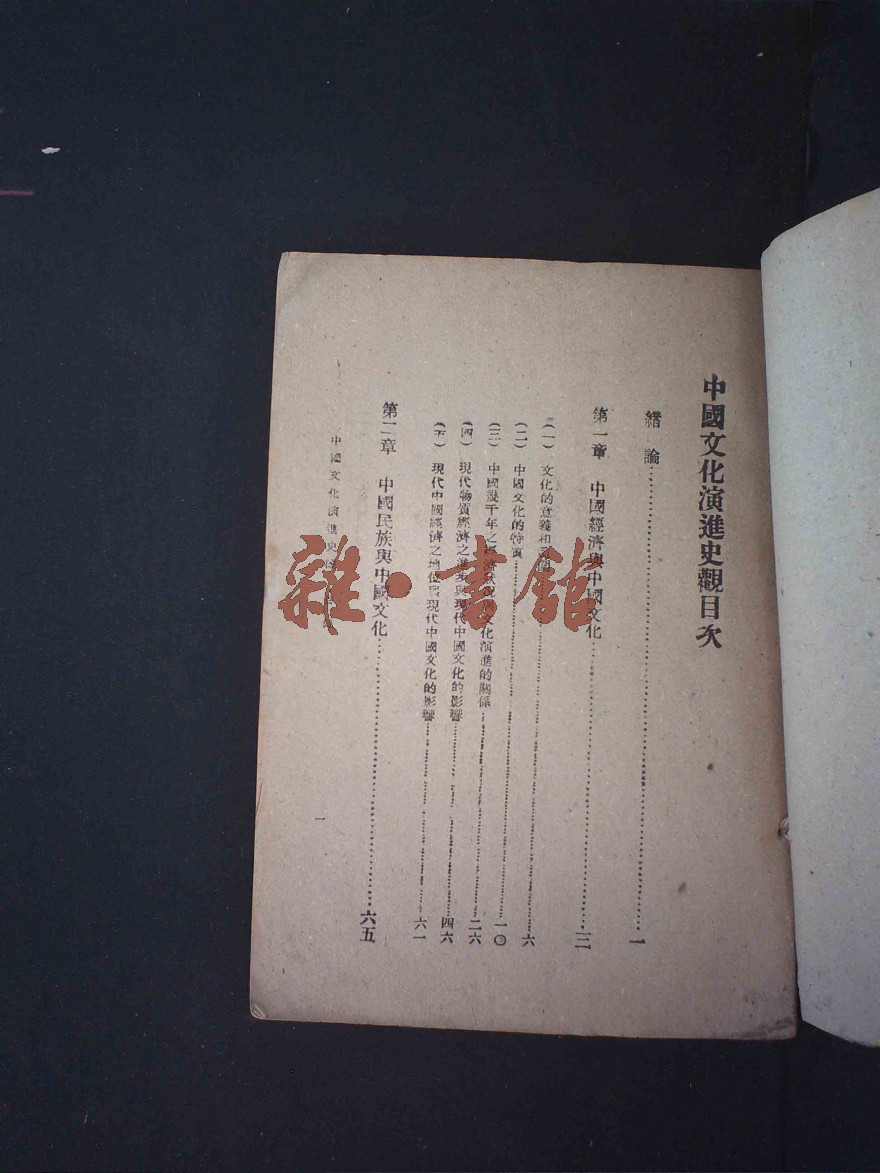 中國文化演進史觀目次
緒論……一
第一章 中國經濟與中國文化……三
(一) 文化的意義和……六
(二) 中國文化的特質……一〇
(三) 中國幾千年之經濟狀況與文化演進的關係……二六
(四) 現代物質經濟之進步與現代中國文化的影響……四六
(五) 現代中國經濟之地位與現代中國文化的影響……六一
第二章 中國民族與中國文化……六五
中國文化演進史
一
雜·書館